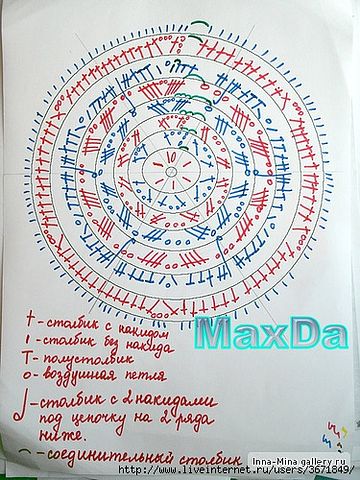 MaxDa
† - столбик с накидом
ı - столбик без накида
Т - полустолбик
о - воздушная петля
ʃ - столбик с 2 накидами
под цепочку на 2 ряда
ниже.
⌒ - соединительный столбик
Inna-Mina gallery.ru
http://www.liveinternet.ru/users/3671849/